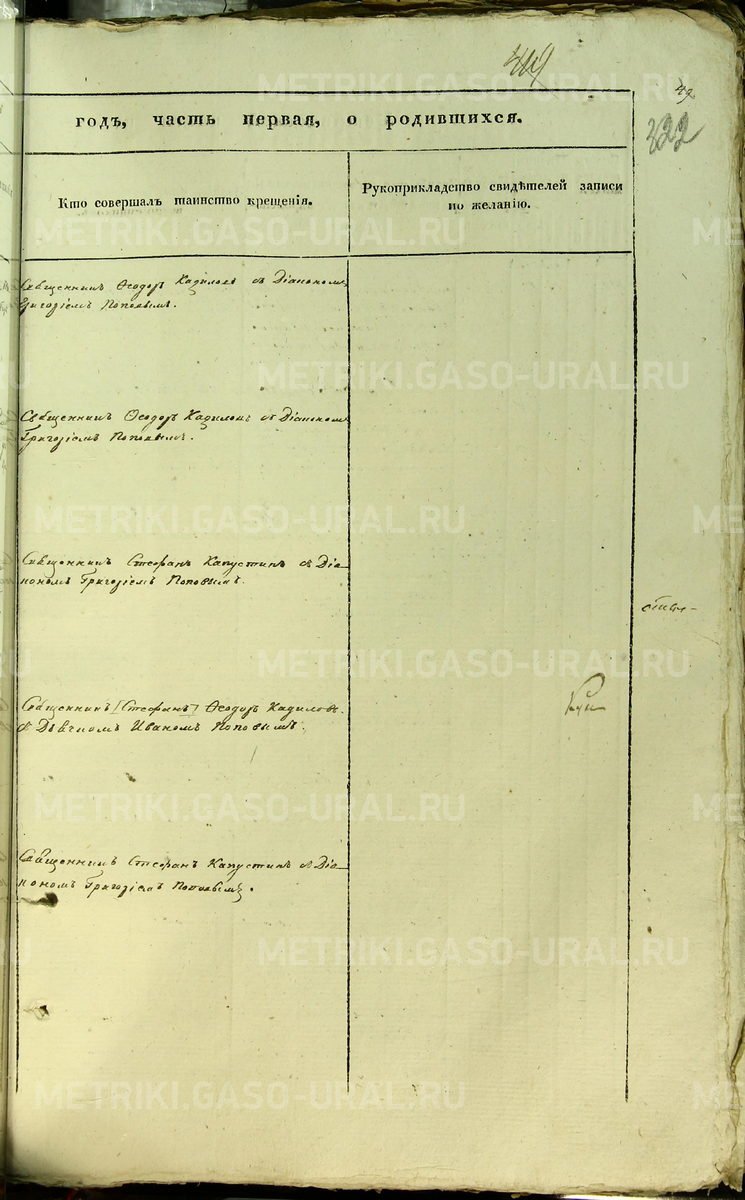 419
49
322
годъ, часть первая, о родившихся.
Кто совершалъ таинство крещенія.
Рукоприкладство свидѣтелей записи
по желанію.
Священникъ Ѳеодоръ Кадиловъ съ Діакономъ
Григоріемъ Поповымъ.
Священникъ Ѳеодоръ Кадиловъ съ Діакономъ
Григоріемъ Поповымъ.
Священникъ Стефанъ Капустинъ съ Діа-
кономъ Григоріемъ Поповымъ.
Священникъ [Стефанъ] Ѳеодоръ Кадиловъ
съ Дьячкомъ Иваномъ Поповымъ.
Священникъ Стефанъ Капустинъ съ Діа-
кономъ Григоріемъ Поповымъ.
METRIKI.GASO-URAL.RU